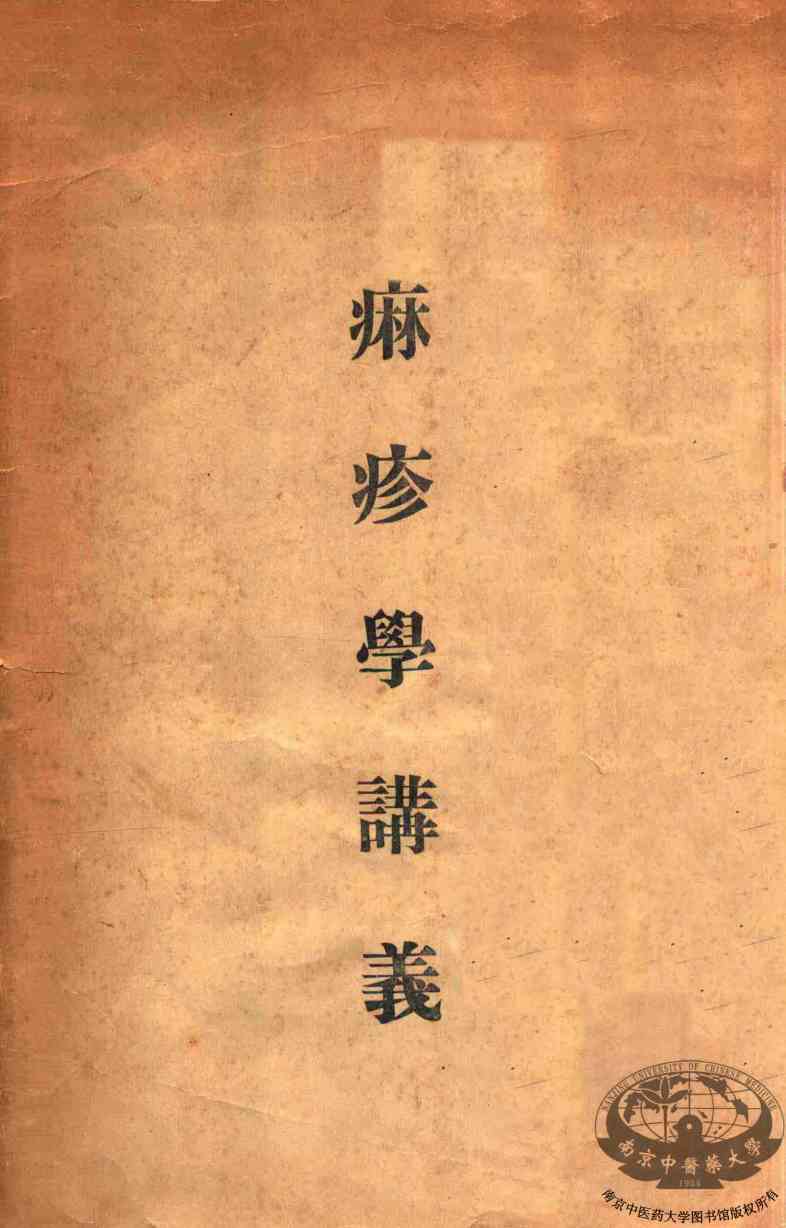 痳疹學講義
NANJING UNIVERSITY OF CHINESE MEDICINE
南京中醫藥大學
1954
南京中医药大学图书馆版权所有